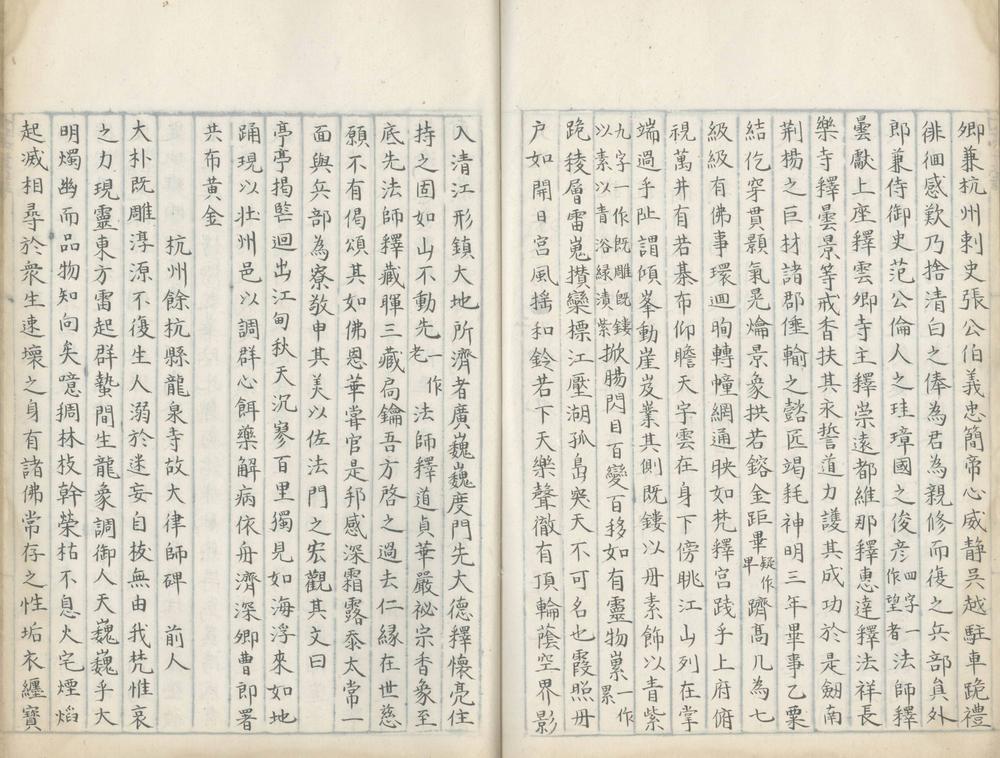 卿兼杭州刺史張公伯義忠簡帝心威静吳越駐車跪禮
徘徊感歎乃捨清白之俸為君為親修而復之兵部貟外
郎兼侍御史范公倫人之珪璋國之俊彦四字一作望者法師釋
曇獻上座釋雲卿寺主釋崇遠都維那釋惠達釋法祥長
樂寺釋曇景等戒香扶其永誓道力護其成功於是劒南
荆揚之巨材諸郡倕輸之懿匠竭耗神明三年畢事乙粟
結仡穿貫顥氣晃爚景象拱若鎔金距畢疑作早躋髙几為七
級級有佛事環迴眴轉幢網通映如梵釋宫践乎上府俯
視萬井有若棊布仰瞻天宇雲在身下傍眺江山列在掌
端過乎阯謂傾峯動崖岌業其側既鏤以丹素飾以青紫
九字一作既雕既鏤以素以青浴緑漬紫掀腸閃目百變百移如有靈物累一作累
跪稜層雷嵬攅欒摽江壓湖孤島突天不可名也霞照丹
户如開日宫風摇和鈴若下天樂聲徹有頂輪蔭空界影
入清江形鎮大地所濟者廣巍巍度門先大德釋懷亮住
持之固如山不動先一作老法師釋道貞華嚴祕宗香象至
底先法師釋藏暉三藏扃鑰吾方啓之過去仁縁在世慈
願不有偈頌其如佛恩華甞官是邦感深霜露忝太常一
面與兵部為寮敬申其美以佐法門之宏觀其文曰
亭亭揭㙜迴出江甸秋天沉寥百里獨見如海浮來如地
踊現以壮州邑以調群心餌藥解病依舟濟深卿曹即署
共布黄金
杭州餘杭縣龍泉寺故大律師碑　前人
大朴既雕淳源不復生人溺於迷妄自拔無由我梵惟哀
之力現靈東方雷起群蟄間生龍象調御人天巍巍乎大
明燭幽而品物知向矣噫捐林枝幹榮枯不息火宅煙焰
起滅相尋於衆生速壞之身有諸佛常存之性垢衣纒寳